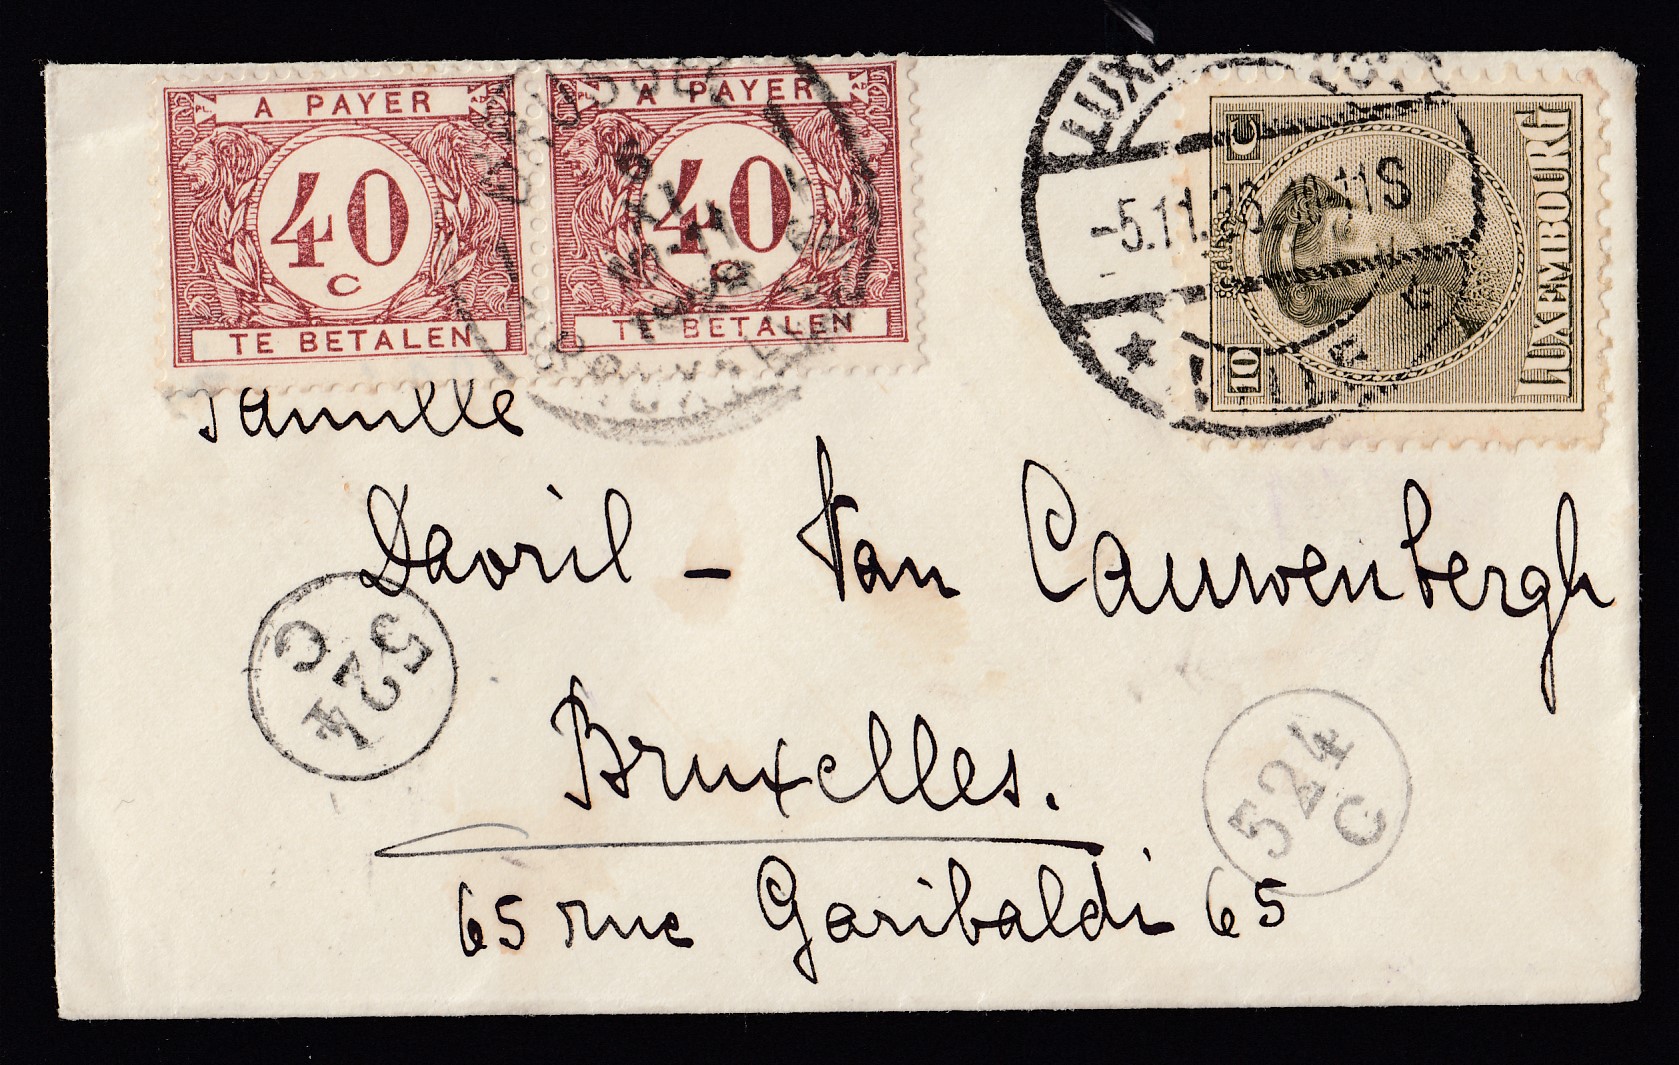 A PAYER
40
c
TE BETALEN
A PAYER
40
c
TE BETALEN
-5.11.
11S
10 C
LUXEMBOURG
Famille
Davril - Van Cauwenbergh
Bruxelles.
65 rue Garibaldi 65
524
C
524
C